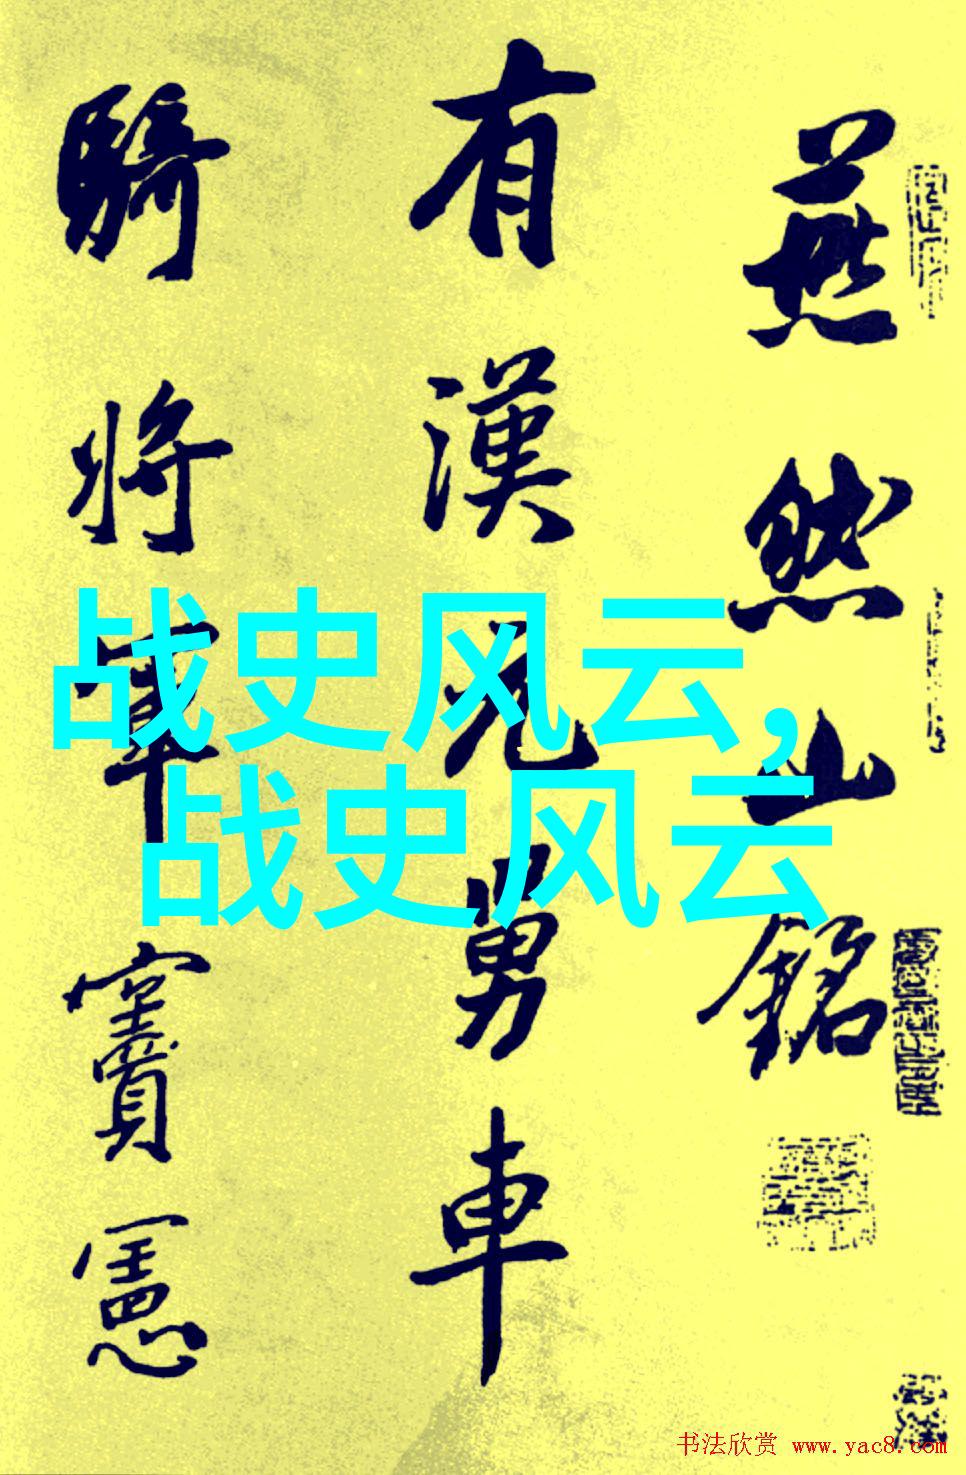 燕然山銘
有漢元舅車
騎將軍竇憲
战史风云,
战史风云
书法欣赏 www.yac8.com